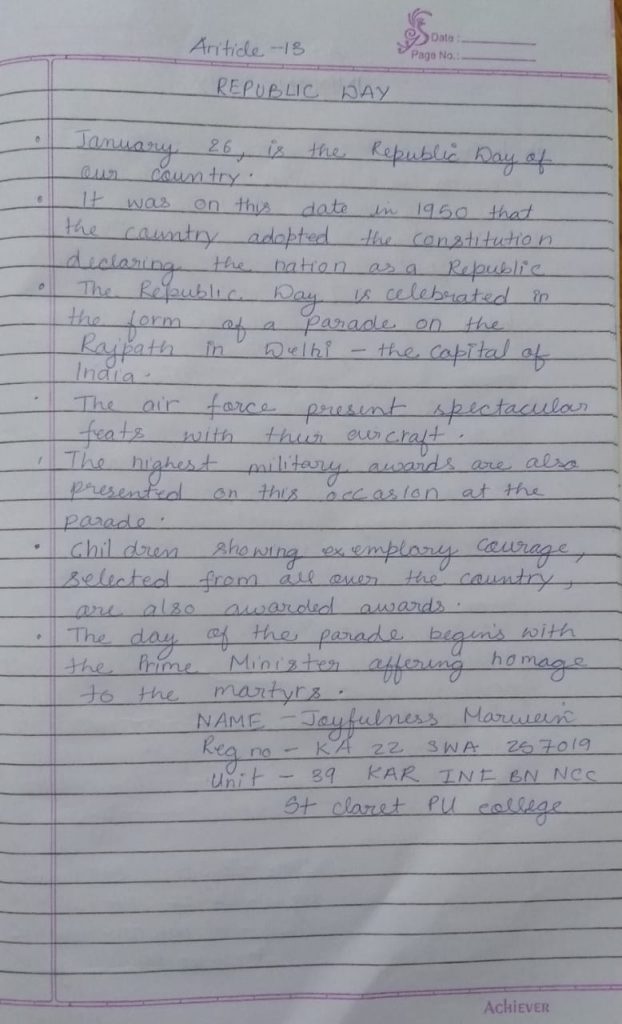 Date :
Page No.:
Aritide -13
REPUBLIC DAY
• January 26, is the Republic Day of
our country.
• It was on this date in 1950 that
the country adopted the constitution
declaring the nation as a Republic
• The Republic Day is celebrated in
the form of a parade on the
Rajpath in Delhi - the capital of
India.
• The air force present spectacular
feats with their aircraft.
• The highest military awards are also
presented on this occasion at the
parade.
• Children showing exemplary courage,
selected from all over the country,
are also awarded awards.
• The day of the parade begins with
the Prime Minister offering homage
to the martyrs.
NAME - Joyfulness Marwein
Reg no - KA 22 SWA 267019
Unit - 39 KAR INF BN NCC
St claret PU college
AcHIEVER